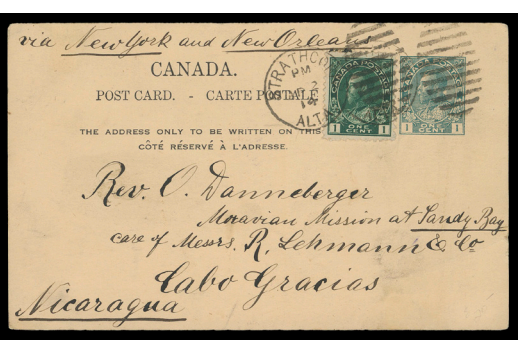 via New York and New Orleans
CANADA.
POST CARD. - CARTE POSTALE
THE ADDRESS ONLY TO BE WRITTEN ON THIS
CÔTÉ RÉSERVÉ À L'ADRESSE.
STRATHCO
PM
2
14
ALTA
CANADA POSTAGE
1 ONE CENT 1
CANADA POSTAGE
1 ONE CENT 1
Rev. O. Danneberger
Moravian Mission at Sandy Bay
care of Messrs. R. Lehmann & Co
Cabo Gracias
Nicaragua